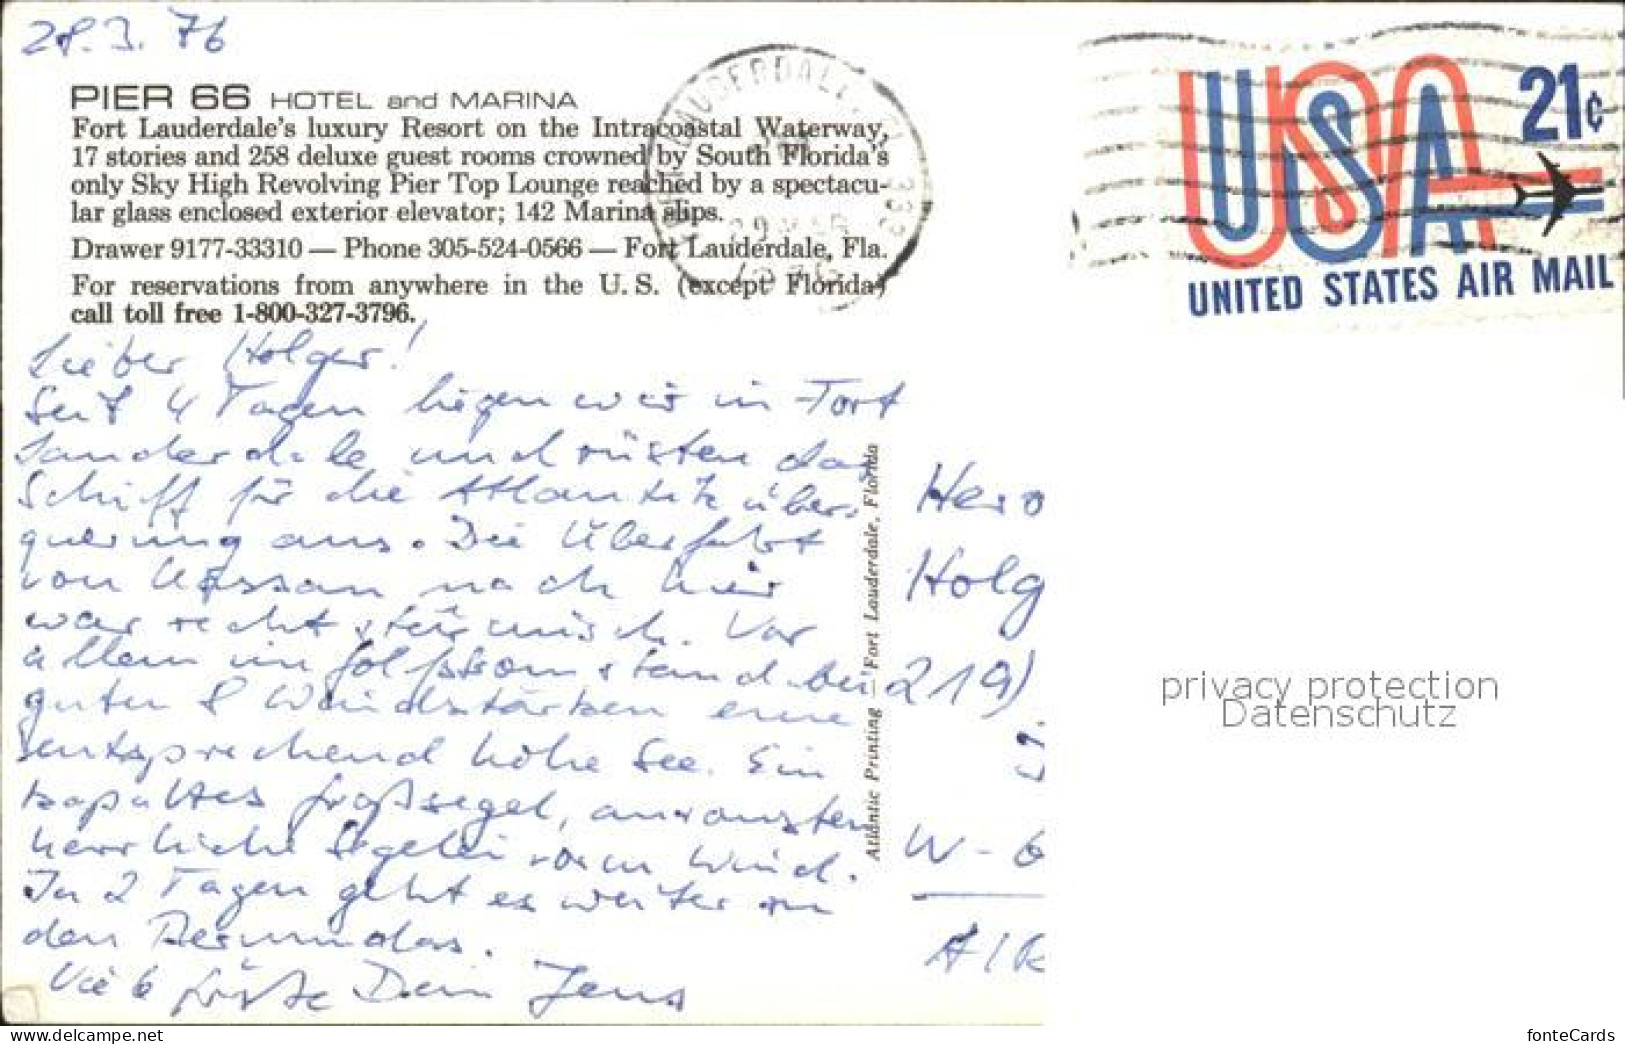 28.3.76
PIER 66 HOTEL and MARINA
Fort Lauderdale's luxury Resort on the Intracoastal Waterway,
17 stories and 258 deluxe guest rooms crowned by South Florida's
only Sky High Revolving Pier Top Lounge reached by a spectacu-
lar glass enclosed exterior elevator; 142 Marina slips.
Drawer 9177-33310 — Phone 305-524-0566 — Fort Lauderdale, Fla.
For reservations from anywhere in the U.S. (except Florida)
call toll free 1-800-327-3796.
Lieber Holger!
Seit 4 Tagen liegen wir in Fort
Lauderdale und rüsten das
Schiff für die Atlantiküber-
querung aus. Die Überfahrt
von Nassau nach hier
war recht stürmisch. Vor
allem im Golfstrom stand bei
guten 8 Windstärken eine
entsprechend hohe See. Ein
kaputtes Großsegel, ansonsten
herrliche Segelei vorm Wind.
In 2 Tagen geht es weiter zu
den Bermudas.
Viele Grüße Dein Jens
Atlantic Printing — Fort Lauderdale, Florida
LAUDERDALE, FL 333
29 MAR
1976
21¢
USA
UNITED STATES AIR MAIL
Herr
Holg
219)
W-6
privacy protection
Datenschutz
www.delcampe.net
fonteCards